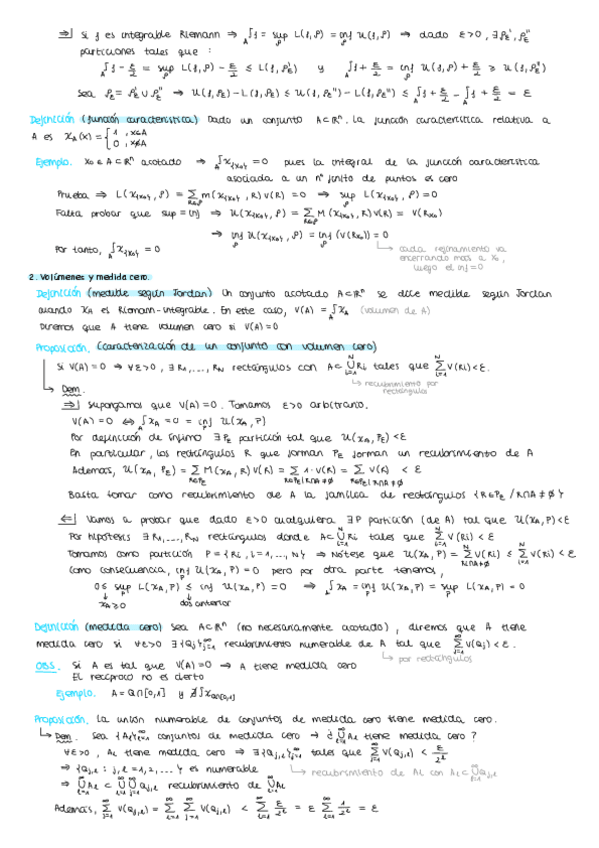 ⇒| Si f es integrable Riemann ⇒ ∫_A f = sup_P L(f,P) = inf_P U(f,P) → dado ε>0, ∃ P_ε', P_ε''
particiones tales que :
∫_A f - ε/2 = sup_P L(f,P) - ε/2 ≤ L(f,P_ε') y ∫_A f + ε/2 = inf_P U(f,P) + ε/2 ≥ U(f,P_ε'')
Sea P_ε = P_ε' ∪ P_ε'' ⇒ U(f,P_ε) - L(f,P_ε) ≤ U(f,P_ε'') - L(f,P_ε') ≤ ∫_A f + ε/2 - ∫_A f + ε/2 = ε
Definición (función característica) Dado un conjunto A⊂ℝⁿ. La función característica relativa a
A es χ_A(x) = { 1, x∈A
0, x∉A
Ejemplo. x₀ ∈ A⊂ℝⁿ acotado → ∫_A χ_{x₀} = 0 pues la integral de la función característica
asociada a un nº finito de puntos es cero
Prueba ⇒ L(χ_{x₀}, P) = Σ_{R∈P} m(χ_{x₀}, R) V(R) = 0 → sup_P L(χ_{x₀}, P) = 0
Falta probar que sup = inf ⇒ U(χ_{x₀}, P) = Σ_{R∈P} M(χ_{x₀}, R) V(R) = V(R_{x₀})
⇒ inf_P U(χ_{x₀}, P) = inf_P (V(R_{x₀})) = 0
cada refinamiento va
encerrando más a x₀,
luego el inf = 0
Por tanto, ∫_A χ_{x₀} = 0
2. Volúmenes y medida cero.
Definición (medible según Jordan) Un conjunto acotado A⊂ℝⁿ se dice medible según Jordan
cuando χ_A es Riemann-integrable. En este caso, V(A) = ∫_A χ_A (volumen de A)
Diremos que A tiene volumen cero si V(A)=0
Proposición. (caracterización de un conjunto con volumen cero)
Si V(A) = 0 ⇒ ∀ε>0, ∃ R₁,..., R_N rectángulos con A⊂ ⋃_{i=1}^N R_i tales que Σ_{i=1}^N V(R_i) < ε.
↳ recubrimiento por
rectángulos
Dem.
⇒| Supongamos que V(A) = 0. Tomamos ε>0 arbitrario.
V(A) = 0 ⇔ ∫_A χ_A = 0 = inf_P U(χ_A, P)
Por definición de ínfimo ∃ P_ε partición tal que U(χ_A, P_ε) < ε
En particular, los rectángulos R que forman P_ε forman un recubrimiento de A
Además, U(χ_A, P_ε) = Σ_{R∈P_ε} M(χ_A, R) V(R) = Σ_{R∈P_ε / R∩A≠∅} 1·V(R) = Σ_{R∈P_ε / R∩A≠∅} V(R) < ε
Basta tomar como recubrimiento de A la familia de rectángulos {R∈P_ε / R∩A≠∅}
⇐| Vamos a probar que dado ε>0 cualquiera ∃ P partición (de A) tal que U(χ_A, P) < ε
Por hipótesis ∃ R₁,..., R_N rectángulos donde A⊂ ⋃_{i=1}^N R_i tales que Σ_{i=1}^N V(R_i) < ε
Tomamos como partición P = {R_i, i=1,..., N} ⇒ Nótese que U(χ_A, P) = Σ_{R_i∩A≠∅} V(R_i) ≤ Σ_{i=1}^N V(R_i) < ε
Como consecuencia, inf_P U(χ_A, P) = 0 pero por otra parte tenemos,
0 ≤ sup_P L(χ_A, P) ≤ inf_P U(χ_A, P) = 0 ⇒ ∫_A χ_A = inf_P U(χ_A, P) = sup_P L(χ_A, P) = 0
χ_A ≥ 0 dos anterior
Definición (medida cero) Sea A⊂ℝⁿ (no necesariamente acotado), diremos que A tiene
medida cero si ∀ε>0 ∃ {Q_j}_{j=1}^∞ recubrimiento numerable de A tal que Σ_{j=1}^∞ V(Q_j) < ε.
↳ por rectángulos
OBS. Si A es tal que V(A) = 0 ⇒ A tiene medida cero
El recíproco no es cierto
Ejemplo. A = ℚ∩[0,1] y ∄ ∫ χ_{ℚ∩[0,1]}
Proposición. La unión numerable de conjuntos de medida cero tiene medida cero.
↳ Dem. Sea {A_ℓ}_{ℓ=1}^∞ conjuntos de medida cero → ¿ ⋃_{ℓ=1}^∞ A_ℓ tiene medida cero ?
∀ε>0, A_ℓ tiene medida cero ⇒ ∃ {Q_{j,ℓ}}_{j=1}^∞ tales que Σ_{j=1}^∞ V(Q_{j,ℓ}) < ε/2^ℓ
⇒ {Q_{j,ℓ} : j,ℓ = 1,2,...} es numerable
↳ recubrimiento de A_ℓ con A_ℓ⊂ ⋃_{j=1}^∞ Q_{j,ℓ}
⇒ ⋃_{ℓ=1}^∞ A_ℓ ⊂ ⋃_{ℓ=1}^∞ ⋃_{j=1}^∞ Q_{j,ℓ} recubrimiento de ⋃_{ℓ=1}^∞ A_ℓ
Además, Σ_{j,ℓ=1}^∞ V(Q_{j,ℓ}) = Σ_{ℓ=1}^∞ Σ_{j=1}^∞ V(Q_{j,ℓ}) < Σ_{ℓ=1}^∞ ε/2^ℓ = ε Σ_{ℓ=1}^∞ 1/2^ℓ = ε